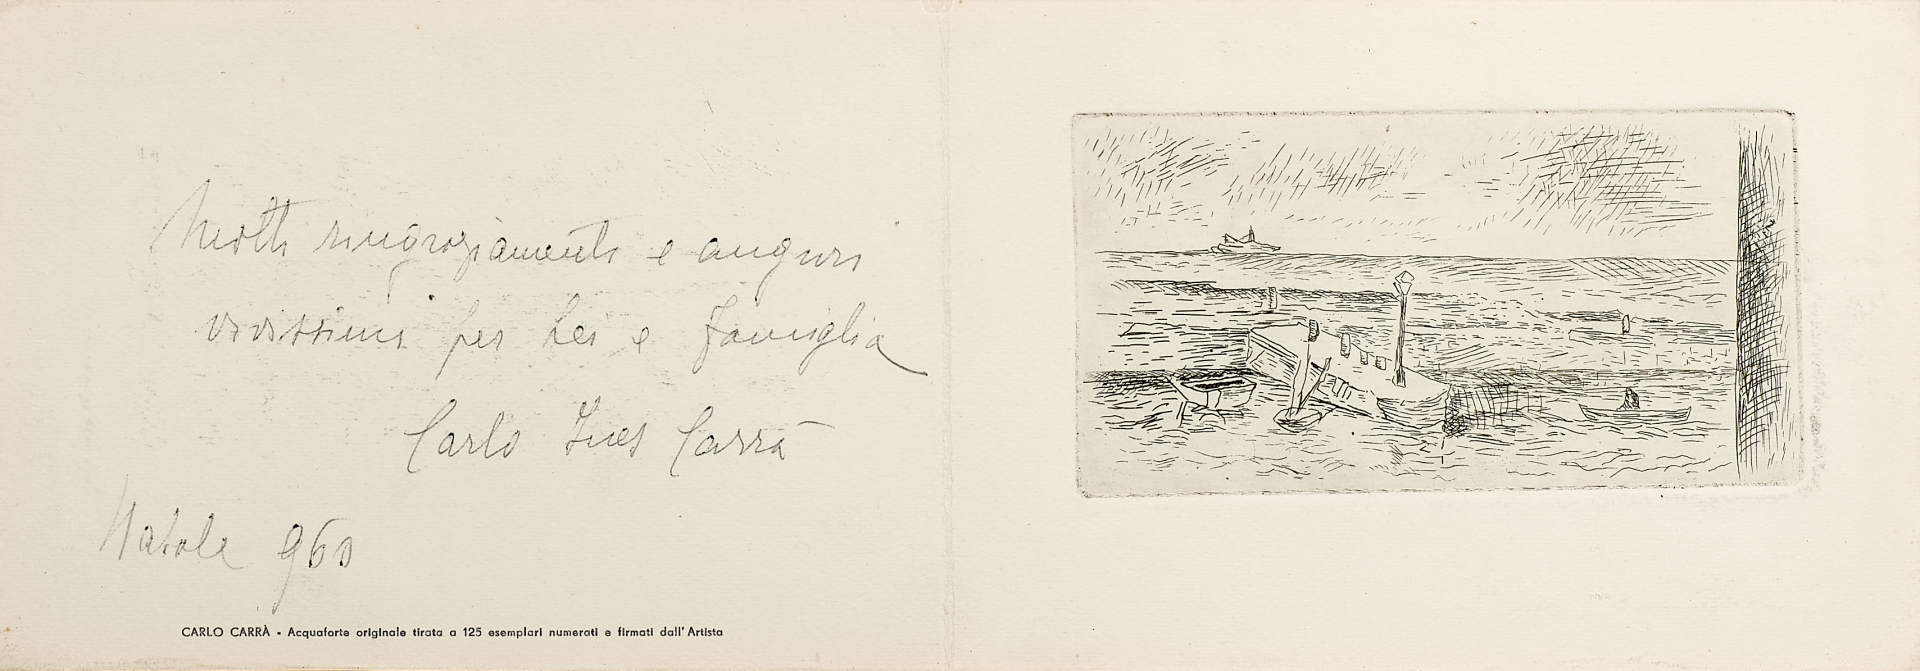 Molti ringraziamenti e auguri
vivissimi per Lei e famiglia
Carlo Ines Carrà
Natale 960
CARLO CARRÀ - Acquaforte originale tirata a 125 esemplari numerati e firmati dall'Artista